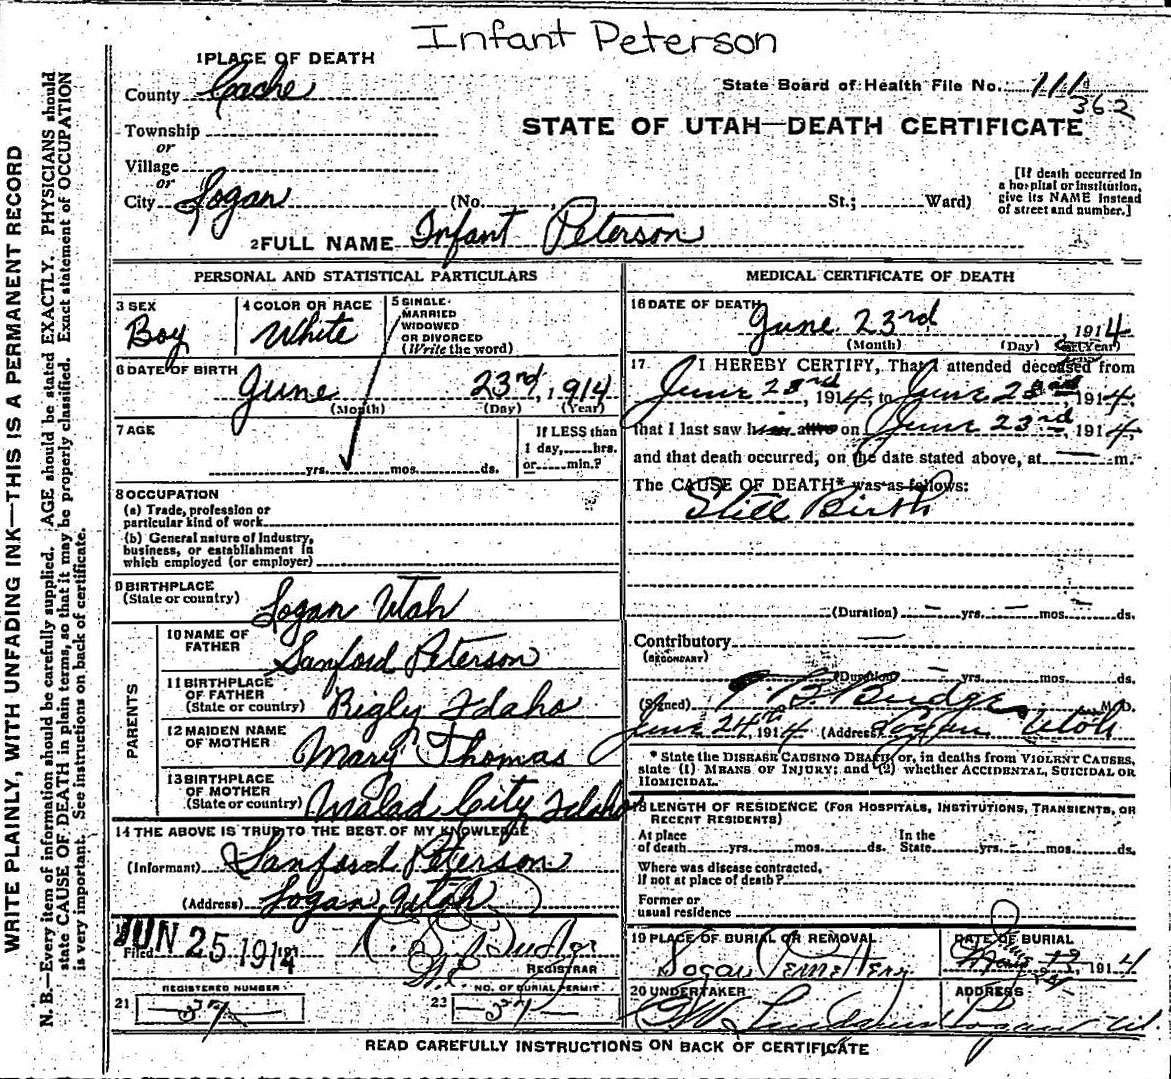 Infant Peterson
1 PLACE OF DEATH
County Cache
State Board of Health File No. 111
362
STATE OF UTAH—DEATH CERTIFICATE
Township
or
Village
or
City Logan (No. , St.; Ward)
[If death occurred in
a hospital or institution,
give its NAME instead
of street and number.]
2 FULL NAME Infant Peterson
PERSONAL AND STATISTICAL PARTICULARS
3 SEX
Boy
4 COLOR OR RACE
White
5 SINGLE
MARRIED
WIDOWED
OR DIVORCED
(Write the word)
6 DATE OF BIRTH
June 23rd, 1914
(Month) (Day) (Year)
7 AGE
If LESS than
1 day, hrs.
or min.?
yrs. mos. ds.
8 OCCUPATION
(a) Trade, profession or
particular kind of work
(b) General nature of Industry,
business, or establishment in
which employed (or employer)
9 BIRTHPLACE
(State or country) Logan Utah
PARENTS
10 NAME OF
FATHER Sanford Peterson
11 BIRTHPLACE
OF FATHER
(State or country) Rigly Idaho
12 MAIDEN NAME
OF MOTHER Mary Thomas
13 BIRTHPLACE
OF MOTHER
(State or country) Malad City Idaho
14 THE ABOVE IS TRUE TO THE BEST OF MY KNOWLEDGE
(Informant) Sanford Peterson
(Address) Logan, Utah
Filed JUN 25 1914
REGISTRAR
REGISTERED NUMBER
21
NO. OF BURIAL PERMIT
22
MEDICAL CERTIFICATE OF DEATH
16 DATE OF DEATH
June 23rd, 1914
(Month) (Day) (Year)
17 I HEREBY CERTIFY, That I attended deceased from
June 23rd, 1914, to June 23rd, 1914,
that I last saw him alive on June 23rd, 1914,
and that death occurred, on the date stated above, at — m.
The CAUSE OF DEATH* was as follows:
Still Birth
(Duration) — yrs. — mos. — ds.
Contributory —
(SECONDARY)
(Duration) — yrs. mos. ds.
(Signed) T. B. Budge M.D.
June 24th, 1914 (Address) Logan Utah
* State the DISEASE CAUSING DEATH, or, in deaths from VIOLENT CAUSES,
state (1) MEANS OF INJURY; and (2) whether ACCIDENTAL, SUICIDAL OR
HOMICIDAL.
18 LENGTH OF RESIDENCE (FOR HOSPITALS, INSTITUTIONS, TRANSIENTS, OR
RECENT RESIDENTS)
At place
of death yrs. mos. ds.
In the
State yrs. mos. ds.
Where was disease contracted,
if not at place of death?
Former or
usual residence
19 PLACE OF BURIAL OR REMOVAL
Logan Cemetery
DATE OF BURIAL
1914
20 UNDERTAKER
ADDRESS
Logan Ut.
READ CAREFULLY INSTRUCTIONS ON BACK OF CERTIFICATE
WRITE PLAINLY, WITH UNFADING INK—THIS IS A PERMANENT RECORD
N. B.—Every item of information should be carefully supplied. AGE should be stated EXACTLY. PHYSICIANS should
state CAUSE OF DEATH in plain terms, so that it may be properly classified. Exact statement of OCCUPATION
is very important. See instructions on back of certificate.